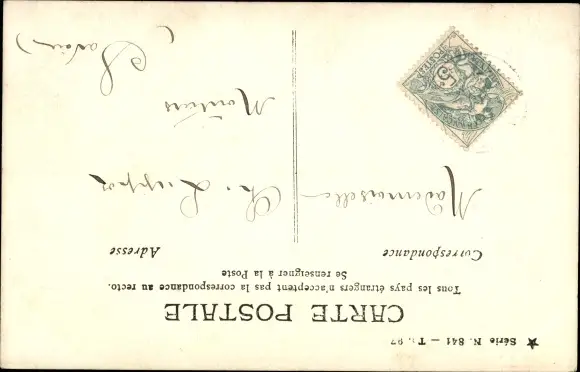 ★ Série N. 841 —
CARTE POSTALE
Tous les pays étrangers n'acceptent pas la correspondance au recto.
Se renseigner à la Poste
Correspondance
Adresse
Mademoiselle
Ch.
Moutiers
(Savoie)
5
POSTES